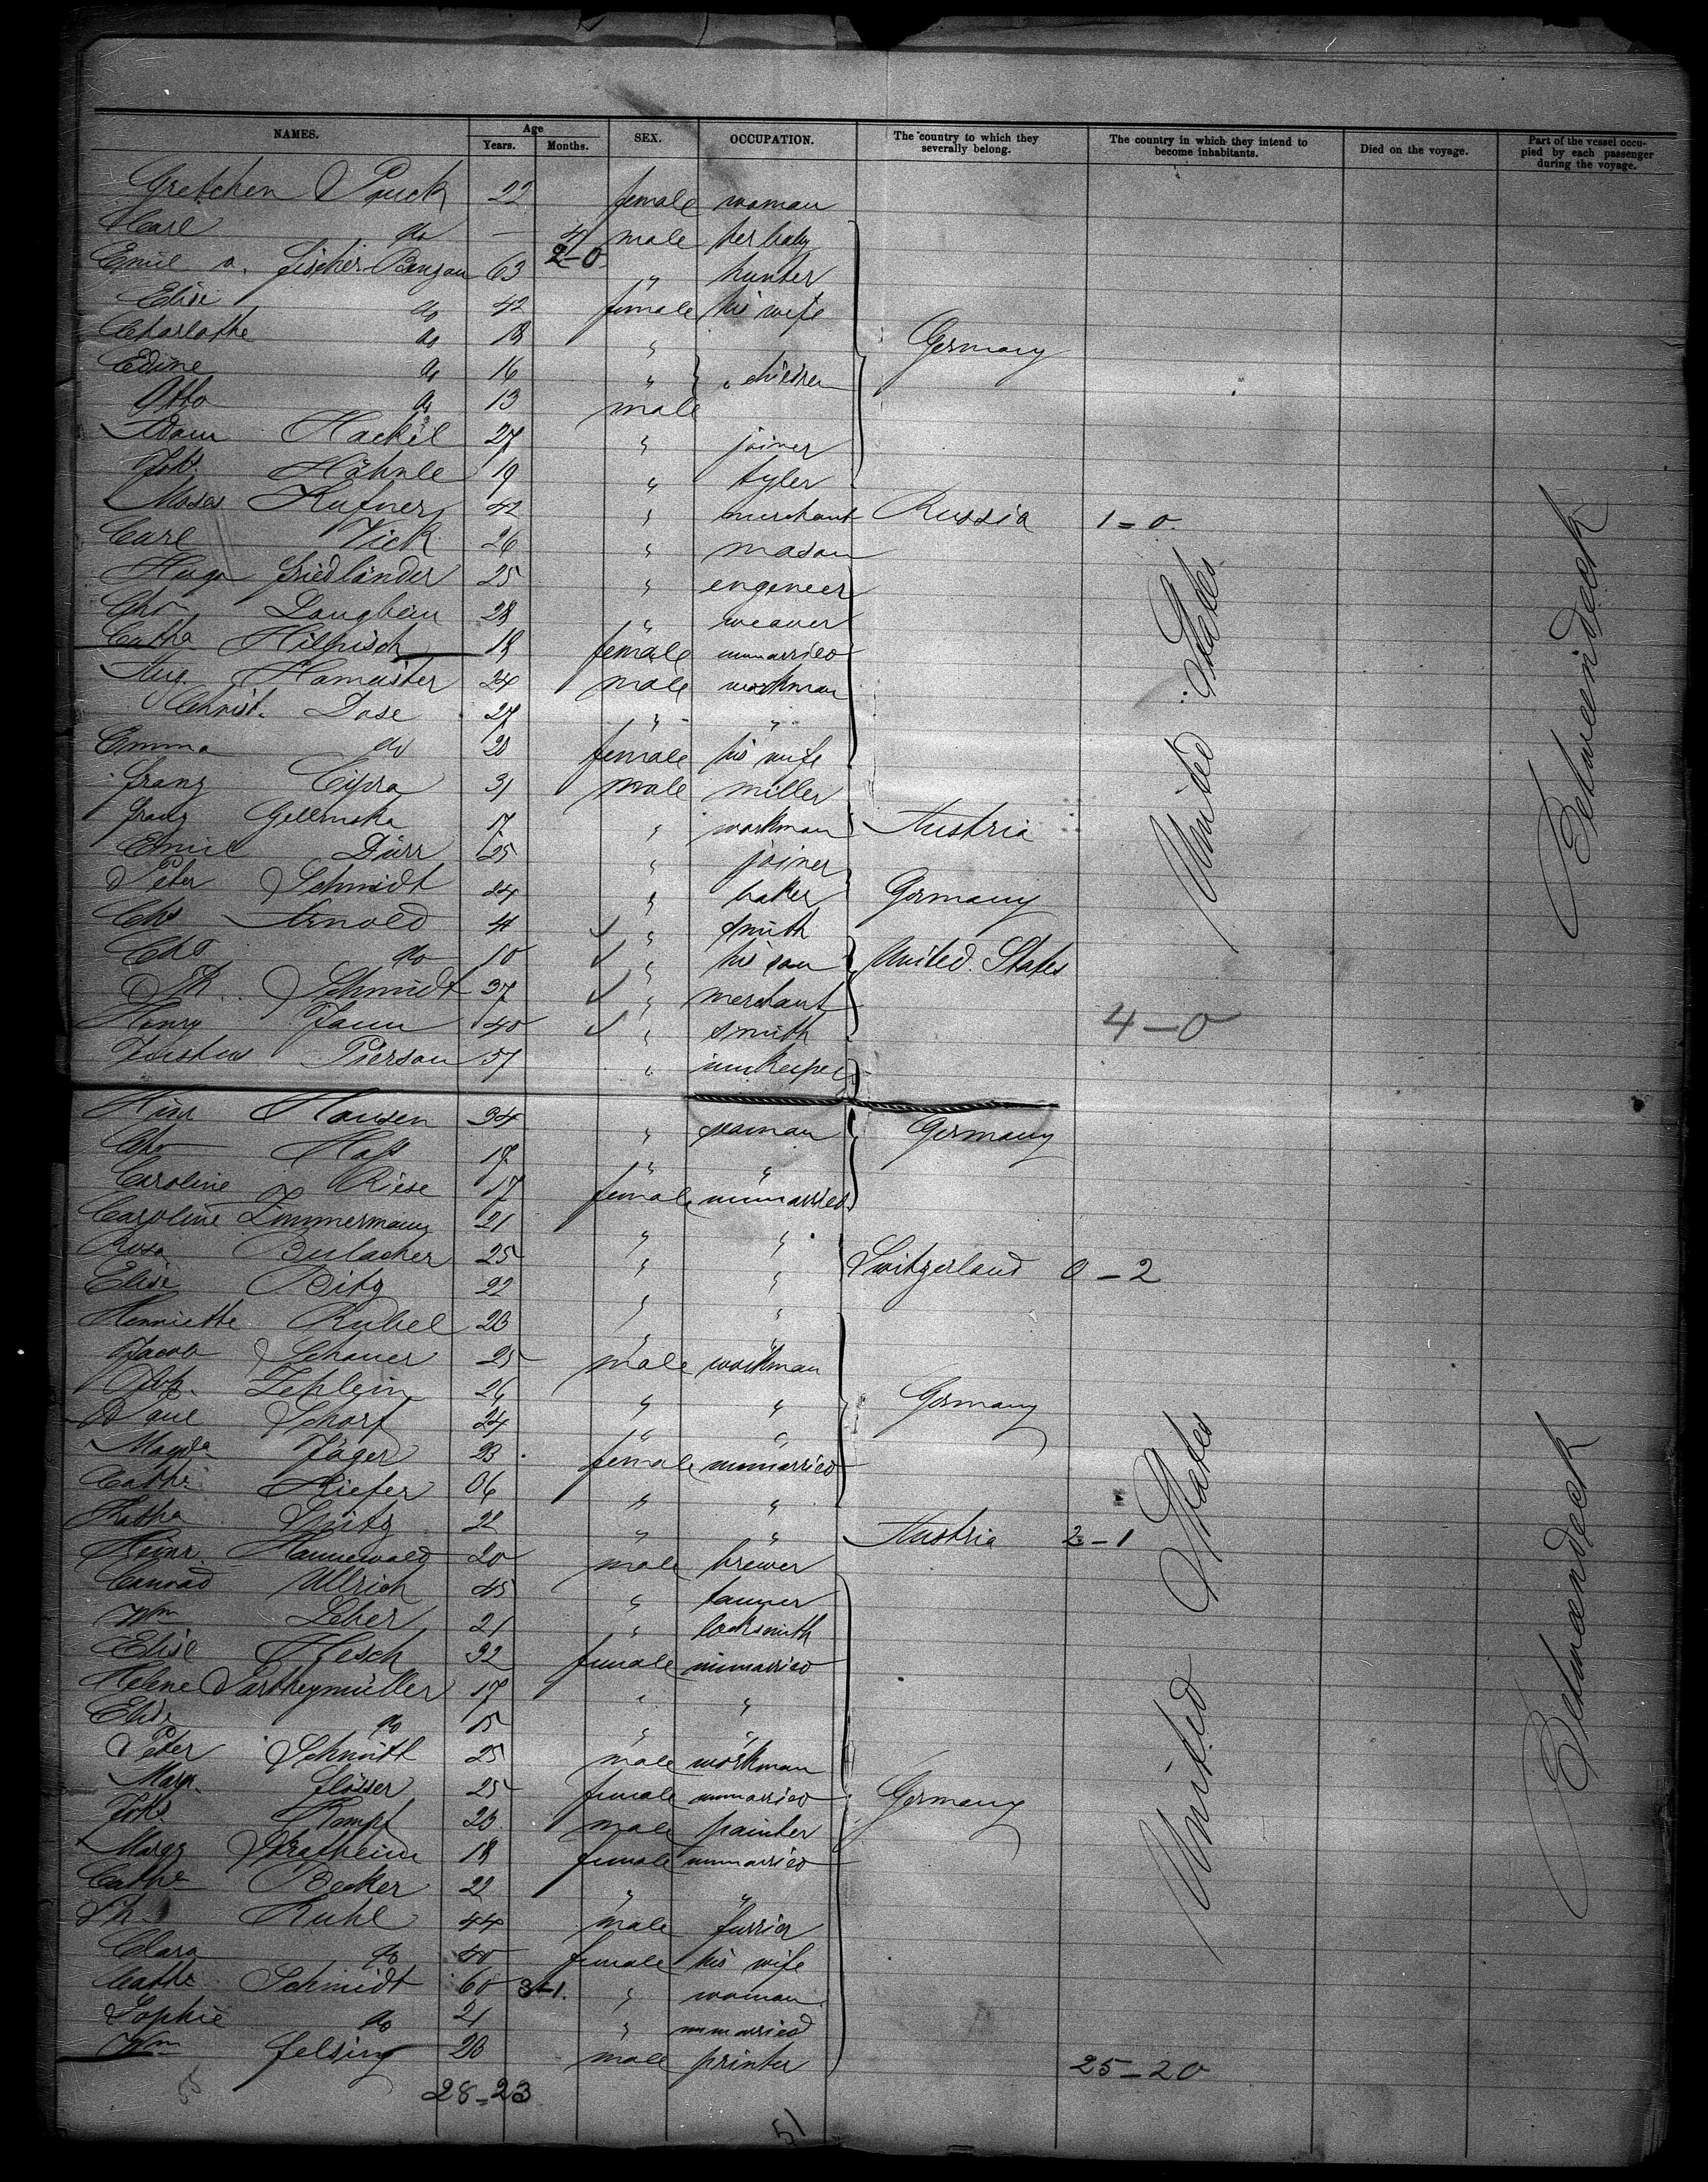 NAMES. Age Years. Months. SEX. OCCUPATION. The country to which they severally belong. The country in which they intend to become inhabitants. Died on the voyage. Part of the vessel occupied by each passenger during the voyage.
Gretchen Pauck 22 female woman
Carl do — 4 male her baby
2-0
Emil v. Fischer-Benzon 63 " hunter
Elise do 42 female his wife
Charlotte do 18 "
Germany
Edine do 16 " " children
Otto do 13 male
Adam Hackel 27 " joiner
Joh. Höhnle 19 " tyler
Moses Kufner 42 " merchant Russia 1-0
Carl Vick 26 " mason
Hugo Friedländer 25 " engeneer
Chr Langbein 28 " weaver
Catha Hilprisch 18 female unmarried
Aug. Hameister 24 male workman
United States
Betweendeck
Christ. Dose 27 " "
Emma do 20 female his wife
Franz Cipra 31 male miller
Franz 17 " workman Austria
Emil Dürr 25 " joiner
Peter Schmidt 24 " baker Germany
Chs Arnold 4 " smith
Chs do 10 " his son United States
Ph. Schmidt 37 " merchant
Henry 40 " smith 4-0
Pierson 57 " innkeeper
Hinr Hansen 34 " seaman Germany
Chr Hass 17 " "
Caroline Riese 17 female unmarried
Caroline Zimmermann 21 " "
Rosa Bulacher 25 " " Switzerland 0-2
Elise Bitz 22 " "
Henriette Rubel 23 " "
Jacob Schauer 25 male workman
26 " " Germany
Paul Scharf 24 " "
Magda Jäger 23 female unmarried
Cathr. Kiefer 06 " "
Katha 22 " " Austria 2-1
Heinr. Hannewald 20 male brewer
Conrad Ullrich 45 " tanner
Wm Leher 21 " locksmith
Elise Hesch 32 female unmarried
Helene Partheymüller 17 " "
Elise do 15 " "
United States
Betweendeck
Peter Schmitt 25 male workman
Marg. Flösser 25 female unmarried Germany
Johs Kompf 23 male painter
Marg 18 female unmarried
Cathe Becker 22 " "
Ph. Kuhl 44 male furrier
Clara do 40 female his wife
Cathr. Schmidt 60 3-1. " woman
Sophie do 21 " unmarried
Wm Felsing 23 male printer
25-20
28-23
51